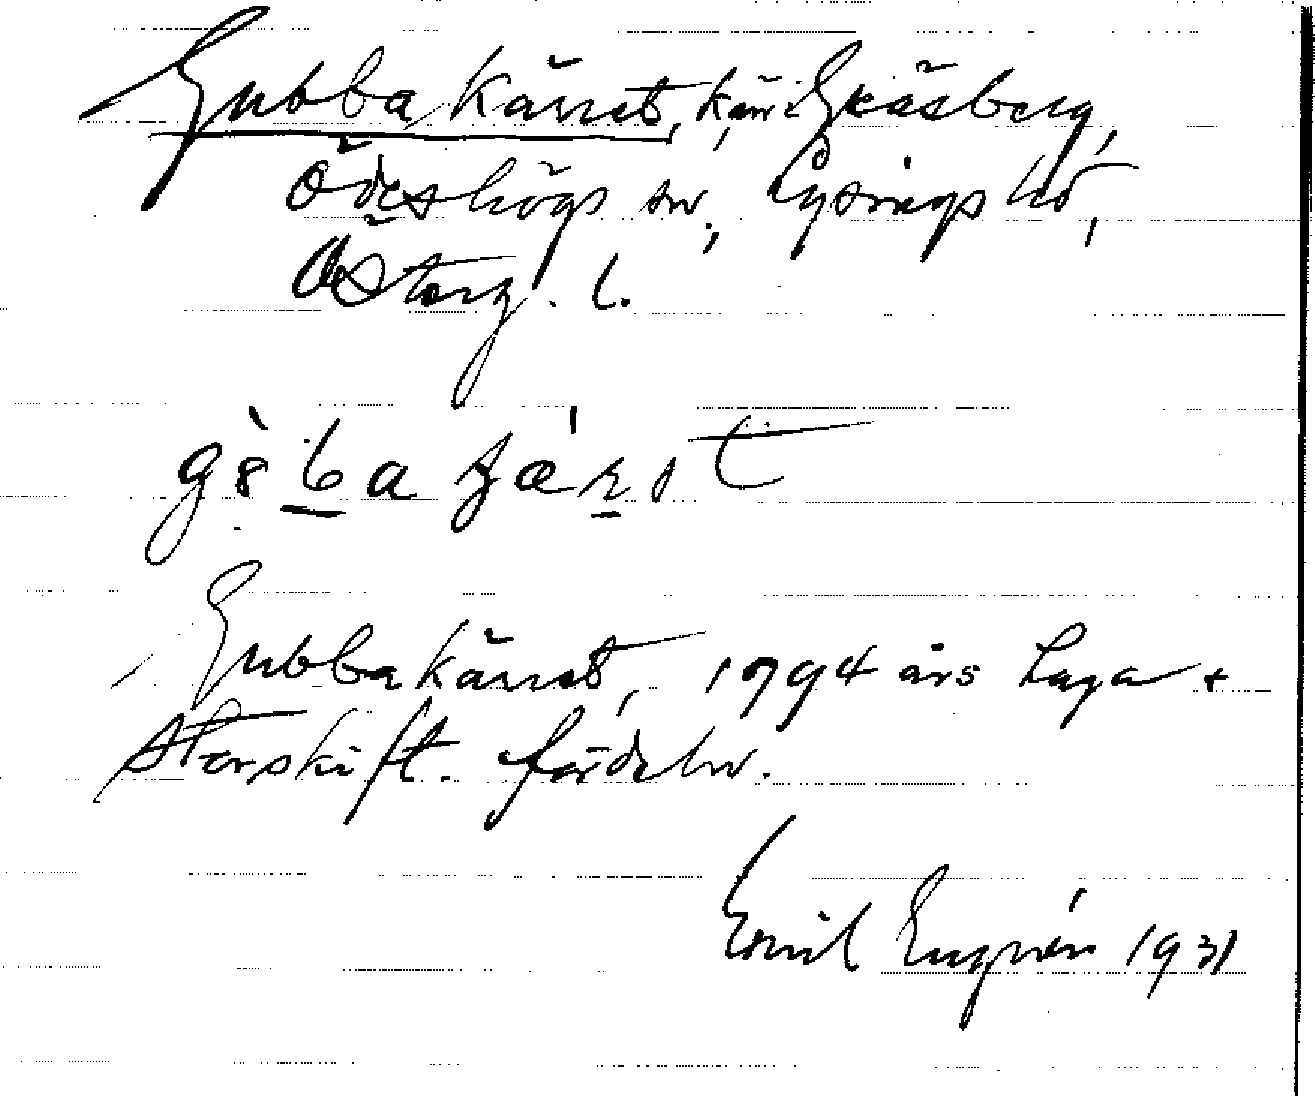 Gubbakärret, kärr i Gråsberg,
Ödeshögs sn., Lysings hd,
Österg. l.
gèba kärət
Gubbakärret, 1794 års Laga +
storskift. fördeln.
Emil Engnér 1931